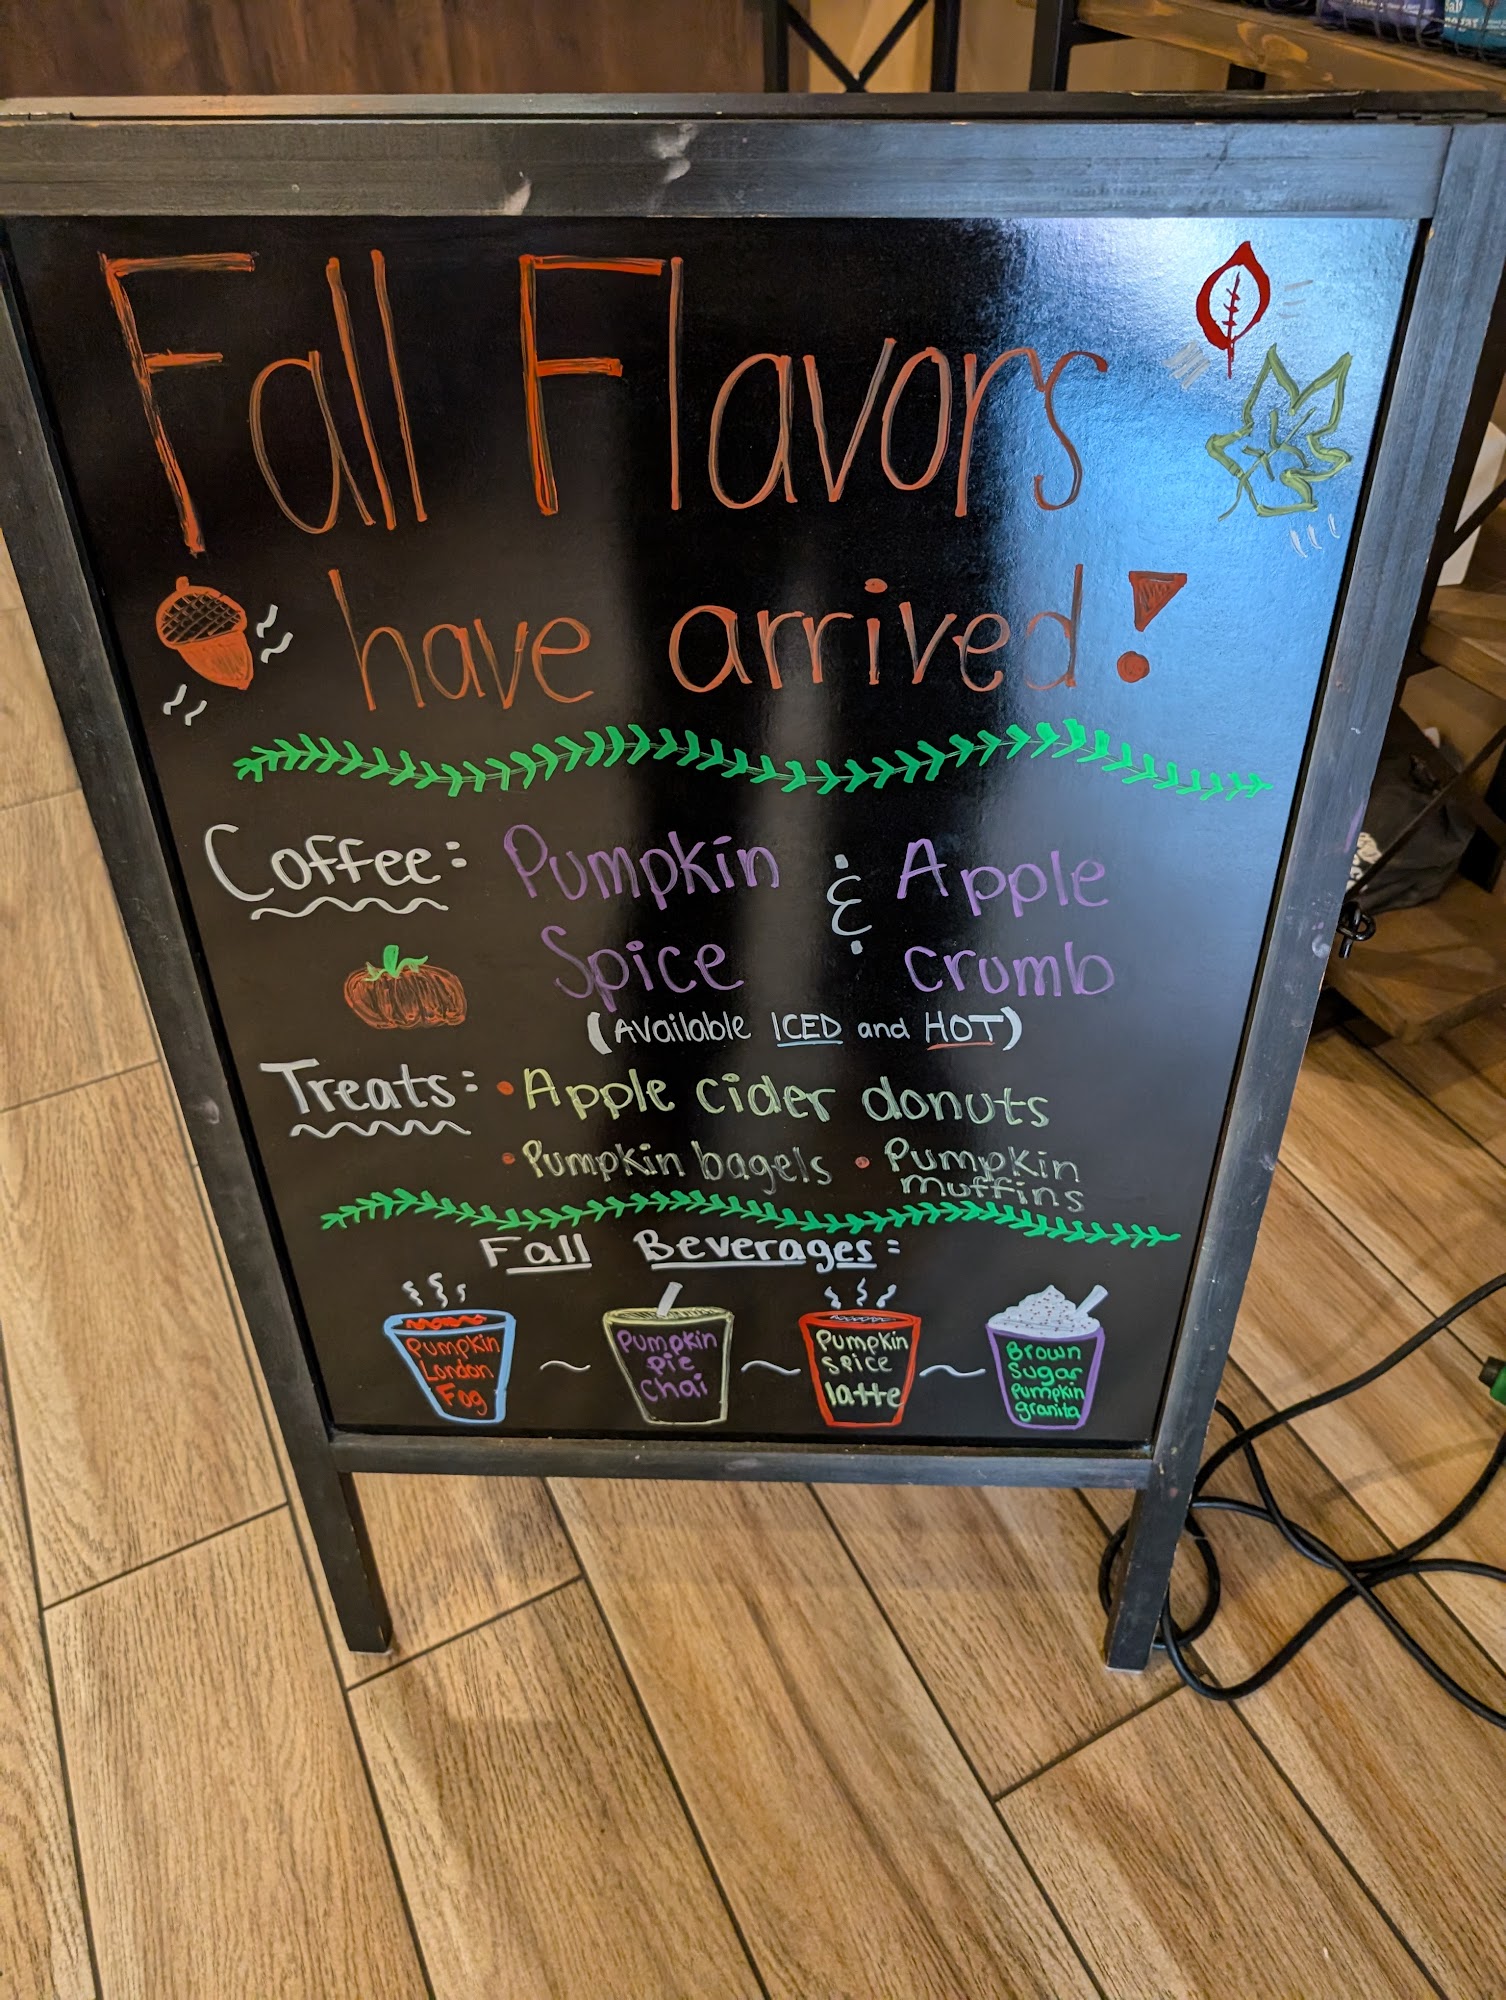 Fall Flavors
have arrived!
Coffee: Pumpkin & Apple
Spice crumb
(Available ICED and HOT)
Treats: • Apple cider donuts
• Pumpkin bagels • Pumpkin
muffins
Fall Beverages:
Pumpkin
London
Fog
Pumpkin
pie
chai
Pumpkin
spice
latte
Brown
Sugar
Pumpkin
granita